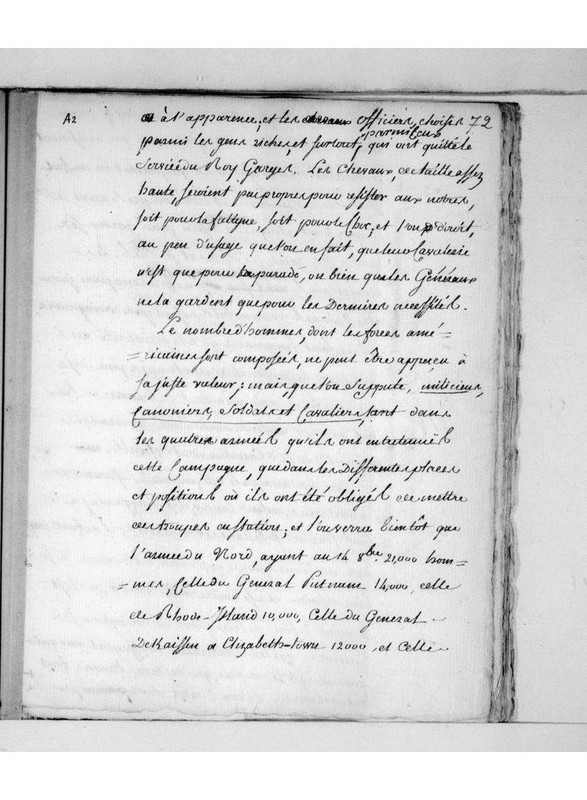 A2
à l'apparence; et les officiers, choisis 72
parmi les gens riches, et surtout, parmi ceux
qui ont quitté le
Service du Roy Georges. Les Chevaux, de taille assez
haute, seroient peu propres pour resister aux notres,
soit pour la fatigue, soit pour le Choc; et l'on diroit,
au peu d'usage que l'on en fait, que leur Cavalerie
n'est que pour la parade, ou bien que les Généraux
ne la gardent que pour les Dernieres necessités.
Le nombre d'hommes, dont les forces amé=
=ricaines sont composées, ne peut être apperçu à
sa juste valeur; mais que l'on Suppute, miliciens,
Canoniers, Soldats et Cavaliers, tant dans
les quatre armées qu'ils ont entretenuës
cette Campagne, que dans les Differentes places
et positions où ils ont été obligés de mettre
des troupes en station; et l'on verra bientôt que
l'armée du Nord, ayant au 14 8bre 21,000 hom=
=mes, Celle du General Putnam 14,000, celle
de Rhode-Island 10,000, Celle du General
a Elizabeth-town 12000, et Celle